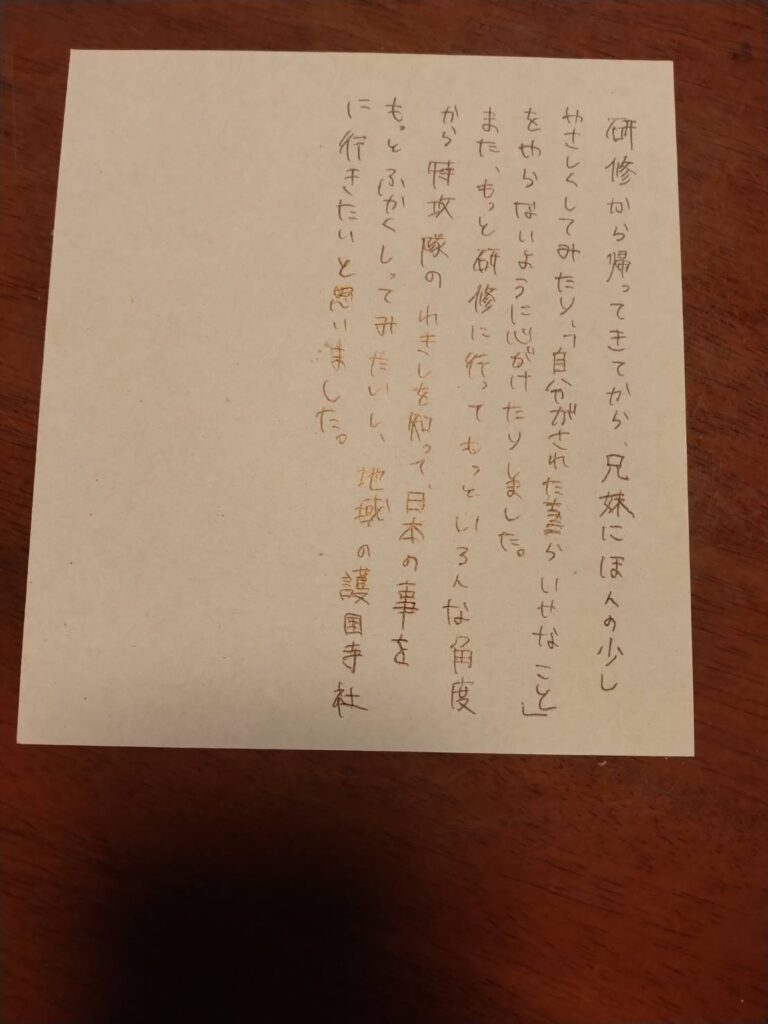 研修から帰ってきてから、兄妹にほんの少し
やさしくしてみたり、「自分がされたらいやなこと」
をやらないように心がけたりしました。
また、もっと研修に行ってもっといろんな角度
から特攻隊のれきしを知って、日本の事を
もっとふかくしってみたいし、地域の護国寺社
に行きたいと思いました。